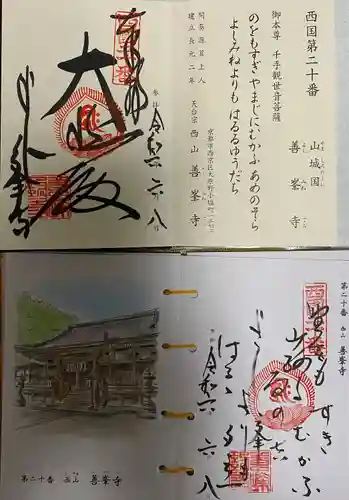 西国第二十番
山城国
やましろのくに
善峯寺
よしみねでら
御本尊 千手観世音菩薩
のをもすぎやまじにむかふあめのそら
よしみねよりもはるるゆうだち
開基源算上人
建立長元二年
天台宗 西山善峯寺
京都市西京区大原野小塩町一三七二
奉拝
大悲殿
よしみね寺
令和六六八
第二十番 西山 善峯寺
野をも すぎ
山路に むかふ
雨の 空
よし峯 より
はるる 夕立
令和六六八
第二十番 西山 善峯寺